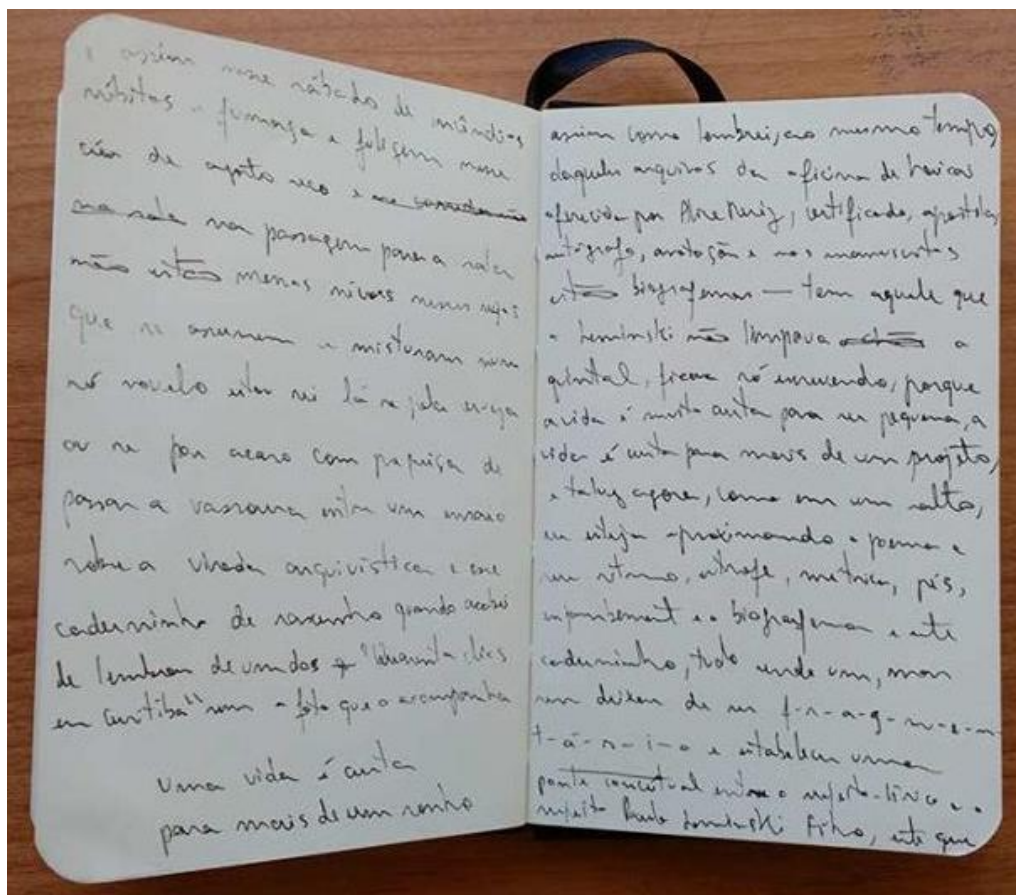 e assim nesse sábado de incêndios
súbitos e fumaça e fuligem nesse
céu de agosto seco e
na sala na passagem para a sala
não estão menos níveos nesses
que se assumem e misturam num
nó novelo estar sei lá se pela
ou se por acaso com preguiça de
passar a vassoura entre um ensaio
sobre a virada arquivística e esse
caderninho de rascunho quando acabei
de lembrar de um dos "Quarenta clics
em Curitiba" sem a foto que o acompanha
uma vida é curta
para mais de um sonho
assim como lembrei, ao mesmo tempo,
daqueles arquivos da oficina de haicai
oferecida por Alice Ruiz, certificado, apostila,
autógrafo, anotação e nos manuscritos
estão biografemas — tem aquele que
o Leminski não limpava o
quintal, ficava só escrevendo, porque
a vida é muito curta para ser pequena, a
vida é curta para mais de um projeto,
e talvez agora, como em um salto,
eu esteja aproximando o poema e
seu ritmo, estrofe, métrica, pés,
enjambement e o biografema e este
caderninho, tudo
sem deixar de ser f-r-a-g-m-e-n-
t-á-r-i-o e estabelecer uma
ponte conceitual entre o sujeito-lírico e o
sujeito Paulo Leminski Filho, este que